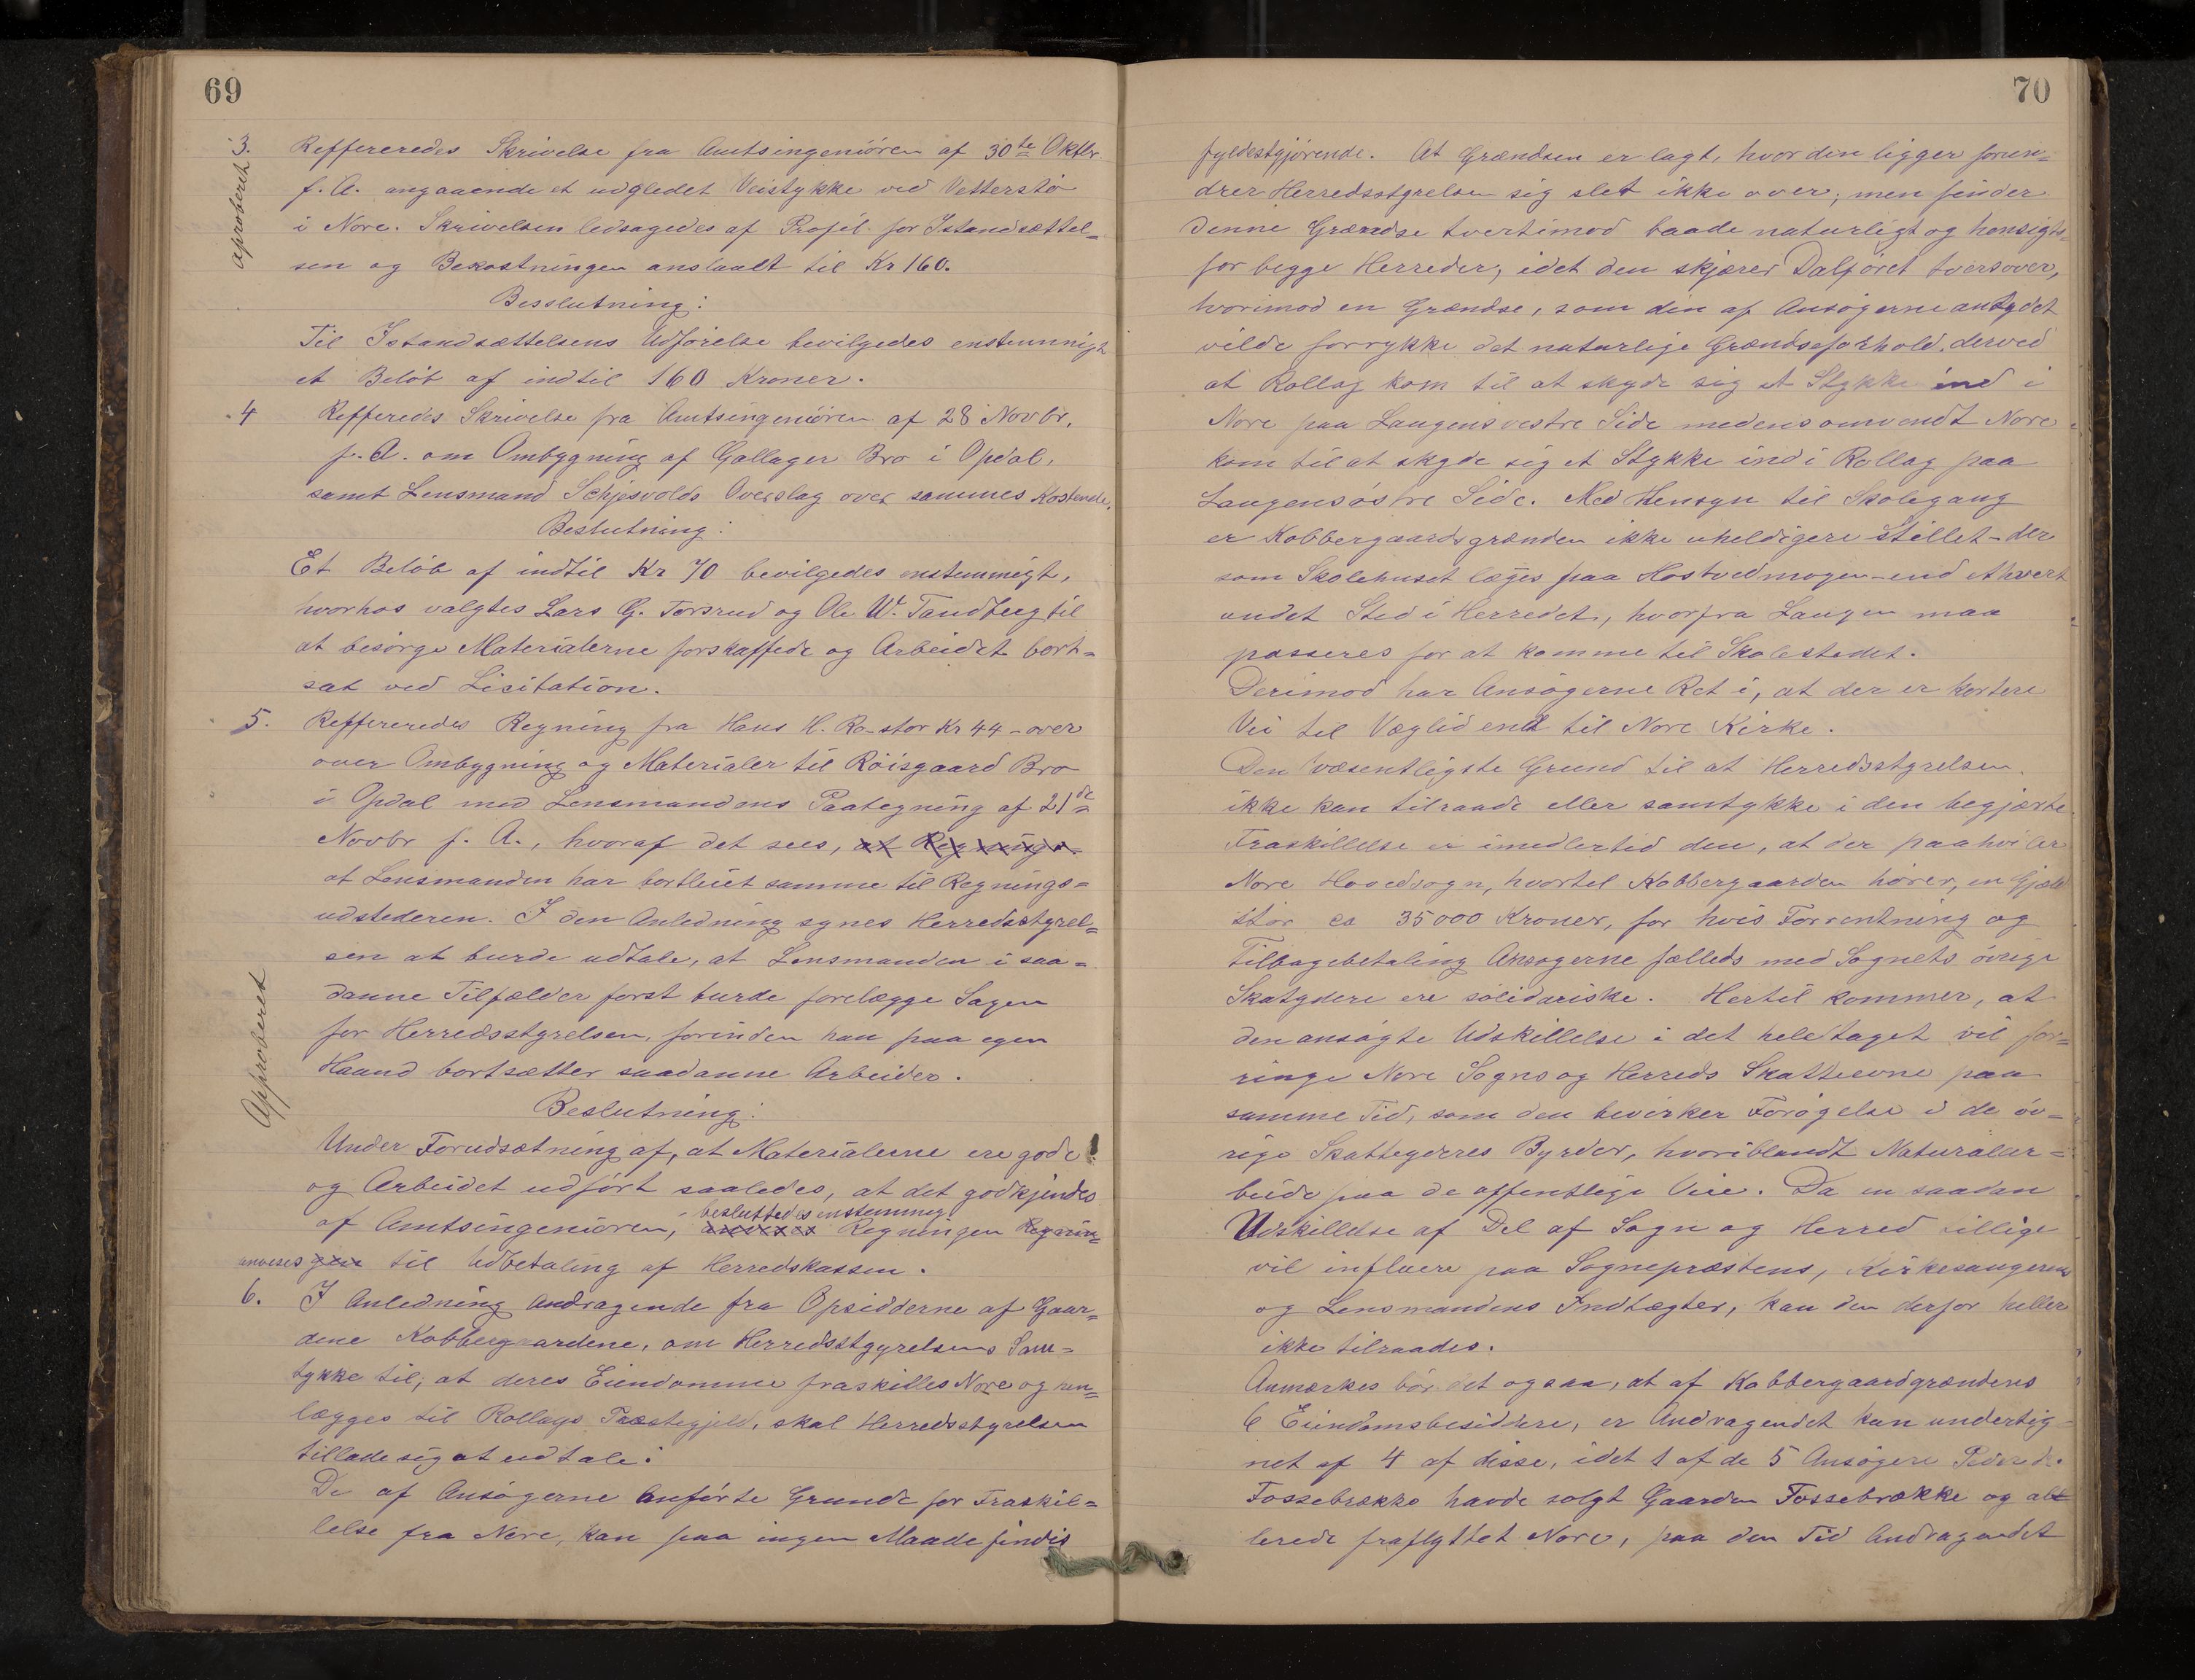 69
3. Reffereredes Skrivelse fra Amtsingeniören af 30te Oktbr
f. A. angaaende et udgledet Veistykke ved Vetterstö
i Nore. Skrivelsen ledsagedes af Profil for Istandsættel=
sen og Bekostningen anslaalt til Kr 160.
aproberet
Besslutning:
Til Istandsættelsens Udförelse bevilgedes enstemmigt
et Belöb af indtil 160 Kroner.
4 Refferedes Skrivelse fra Amtsingeniören af 28 Novbr.
f. A. om Ombygning af Gallager Bro i Opdal,
samt Lensmand Schjesvolds Overslag over sammes Kostende.
Beslutning:
Et Belöb af indtil Kr 70 bevilgedes enstemmigt,
hvorhos valgtes Lars G. Torsrud og Ole W. Tandberg til
at besörge Materialerne forskaffede og Arbeidet bort=
sat ved Lisitation.
5. Reffereredes Regning fra Hans H. Ro stor Kr 44 - over
over Ombygning og Materialer til Röisgaard Bro
i Opdal med Lensmandens Paategning af 21de
Novbr f. A., hvoraf det sees, at Regningen
at Lensmanden har bortleiet samme til Regnings=
udstederen. I den Anledning synes Herredsstyrel=
sen at burde udtale, at Lensmanden i saa=
danne Tilfælder först burde forelægge Sagen
for Herredsstyrelsen, forinden han paa egen
Haand bortsætter saadanne Arbeider.
Approberet
Beslutning:
Under Forudsætning af, at Materialerne ere gode
og Arbeidet udfört saaledes, at det godkjendes
besluttedes enstemmig
af Amtsingeniören, anvises Regningen Regnin=
anvises gen til Udbetaling af Herredskassen.
6. I Anledning Andragende fra Opsidderne af Gaar=
dene Kobbergaardene, om Herredsstyrelsens Sam=
tykke til, at deres Eiendomme fraskilles Nore og hen=
lægges til Rollags Præstegjeld, skal Herredsstyrelsen
tillade sig at udtale:
De af Ansögerne anförte Grunde for Fraskil=
lelse fra Nore, kan paa ingen Maade findes
70
fyldestgjörende. At Grændsen er lagt, hvor den ligger forun=
drer Herredsstyrelsen sig slet ikke over; men finder
denne Grændse tvertimod baade naturligt og hensigts=
for begge Herreder, idet den skjærer Dalföret tversover,
hvorimod en Grændse, som den af Ansögerne antydet
vilde forrykke det naturlige Grændseforhold, derved
at Rollag kom til at skyde sig et Stykke ind i
Nore paa Laugens vestre Side medens omvendt Nore
kom til at skyde sig et Stykke ind i Rollag paa
Laugens östre Side. Med Hensyn til Skolegang
er Kobbergaardsgrænden ikke uheldigere stillet - der
som Skolehuset læges paa Hostvedmogen - end ethvert
andet Sted i Herredet, hvorfra Laugen maa
passeres for at komme til Skolestedet.
Derimod har Ansögerne Ret i, at der er kortere
Vei til Væglid end til Nore Kirke.
Den væsentligste Grund til at Herredsstyrelsen
ikke kan tilraade eller samtykke i den begjærte
Fraskillelse er imedlertid den, at der paahviler
Nore Hovedsogn, hvortil Kobbergaarden hörer, en Gjæld
stor ca 35000 Kroner, for hvis Forrentning og
Tilbagebetaling Ansögerne fælleds med Sognets övrige
Skatydere ere solidariske. Hertil kommer, at
den ansögte Udskillelse i det heletaget vil for=
ringe Nore Sogns og Herreds Skatteevne paa
samme Tid, som den bevirker Forögelse i de öv=
rige Skatteyderes Byrder, hvoriblandt Naturalar=
beide paa de offentlige Veie. Da en saadan
Udskillelse af Del af Sogn og Herred tillige
vil influere paa Sognepræstens, Kirkesangerens
og Lensmandens Indtægter, kan den derfor heller
ikke tilraades.
Anmærkes bör det ogsaa, at af Kobbergaardgrændens
6 Eiendomsbesiddere, er Andragendet kun undertig
net af 4 af disse, idet 1 af de 5 Ansögere
Fossebrække havde solgt Gaarden Fossebrække og al
lerede fraflyttet Nore, paa den Tid Andragendet